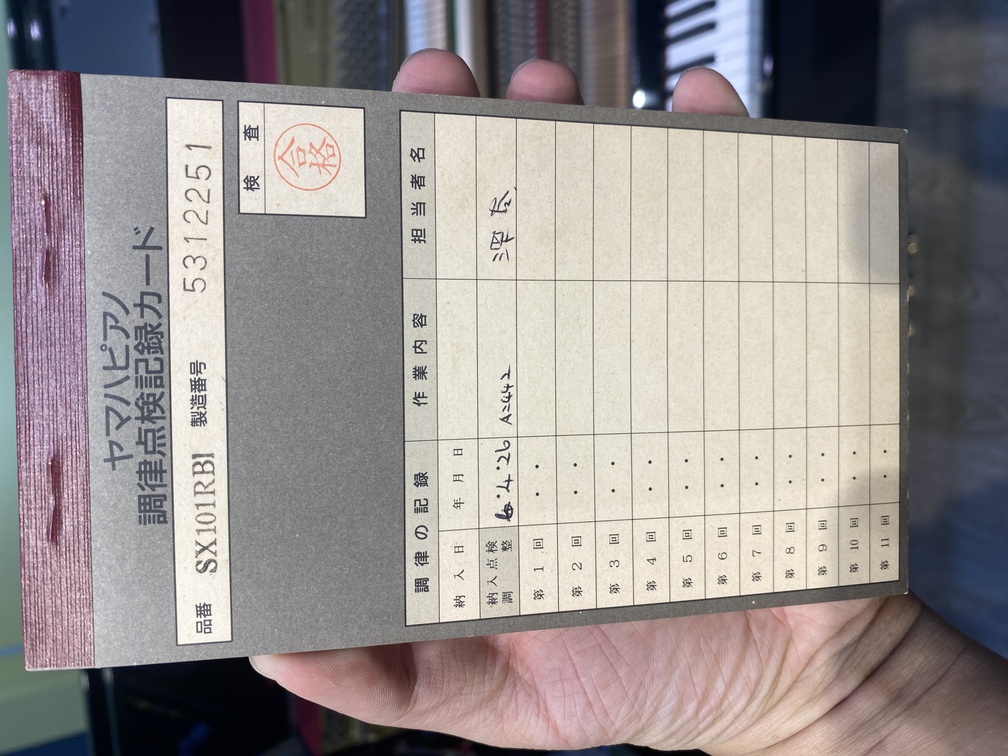 ヤマハピアノ
調律点検記録カード
品番 SX101RBl 製造番号 5312251
検 査
合格
調律の記録 作業内容 担当者名
納入日 年 月 日
納入点検
調 整 6・4・26 A=442
第 1 回 ・ ・
第 2 回 ・ ・
第 3 回 ・ ・
第 4 回 ・ ・
第 5 回 ・ ・
第 6 回 ・ ・
第 7 回 ・ ・
第 8 回 ・ ・
第 9 回 ・ ・
第 10 回 ・ ・
第 11 回 ・ ・